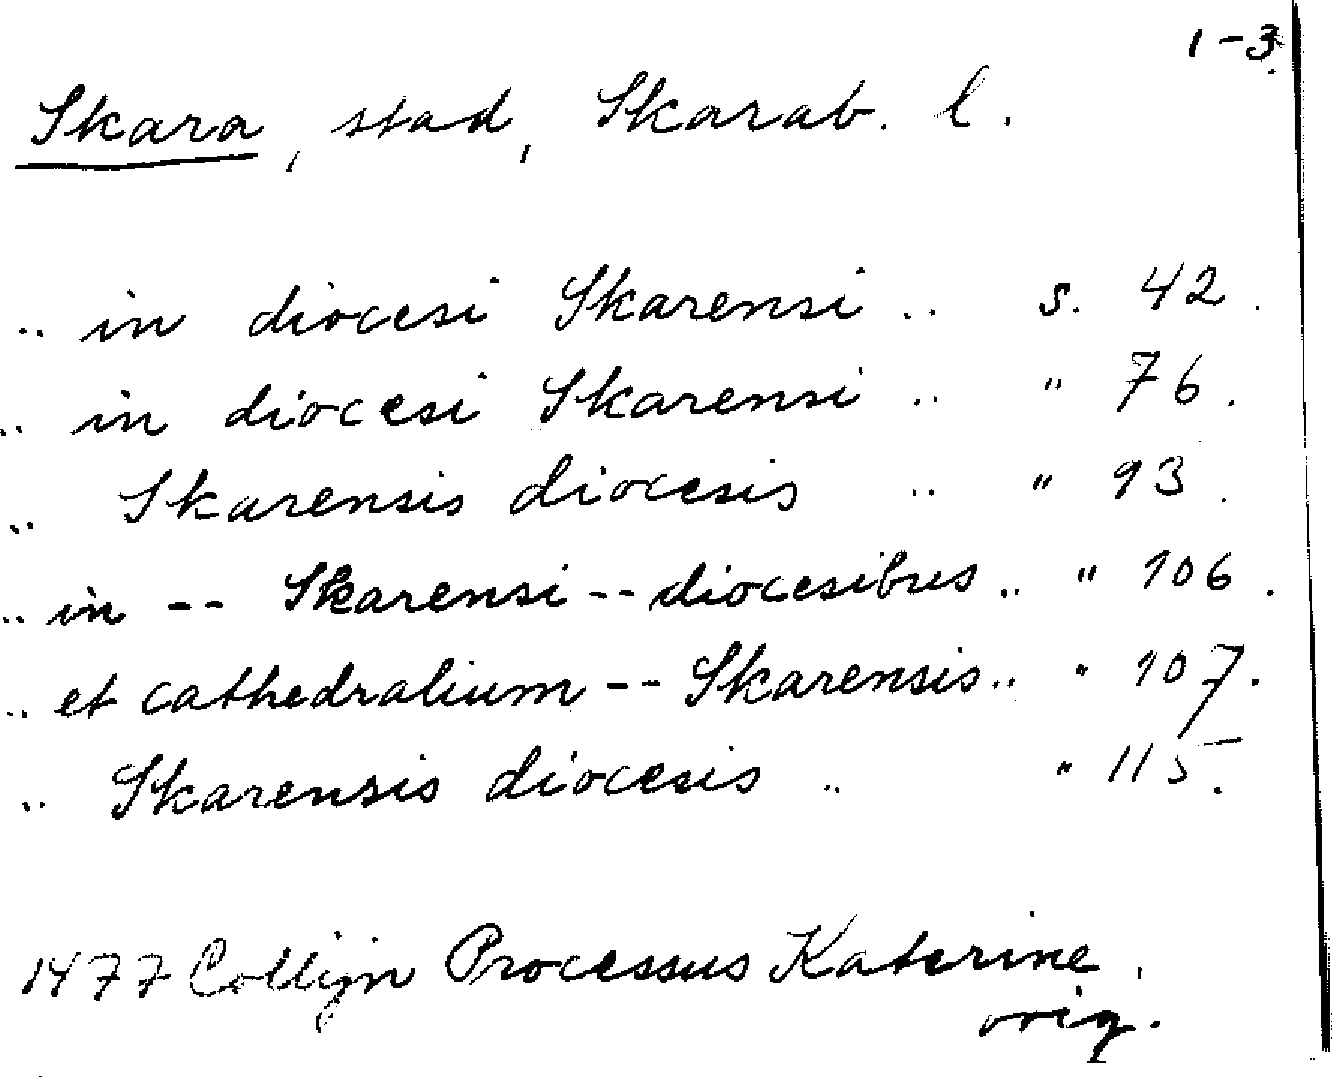 1-3.
Skara, stad, Skarab. l.
.. in diocesi Skarensi .. s. 42.
.. in diocesi Skarensi .. " 76.
.. Skarensis diocesis .. " 93.
.. in -- Skarensi -- diocesibus .. " 106.
.. et cathedralium -- Skarensis .. " 107.
.. Skarensis diocesis .. " 115.
1477 Collijn Processus Katerine.
orig.